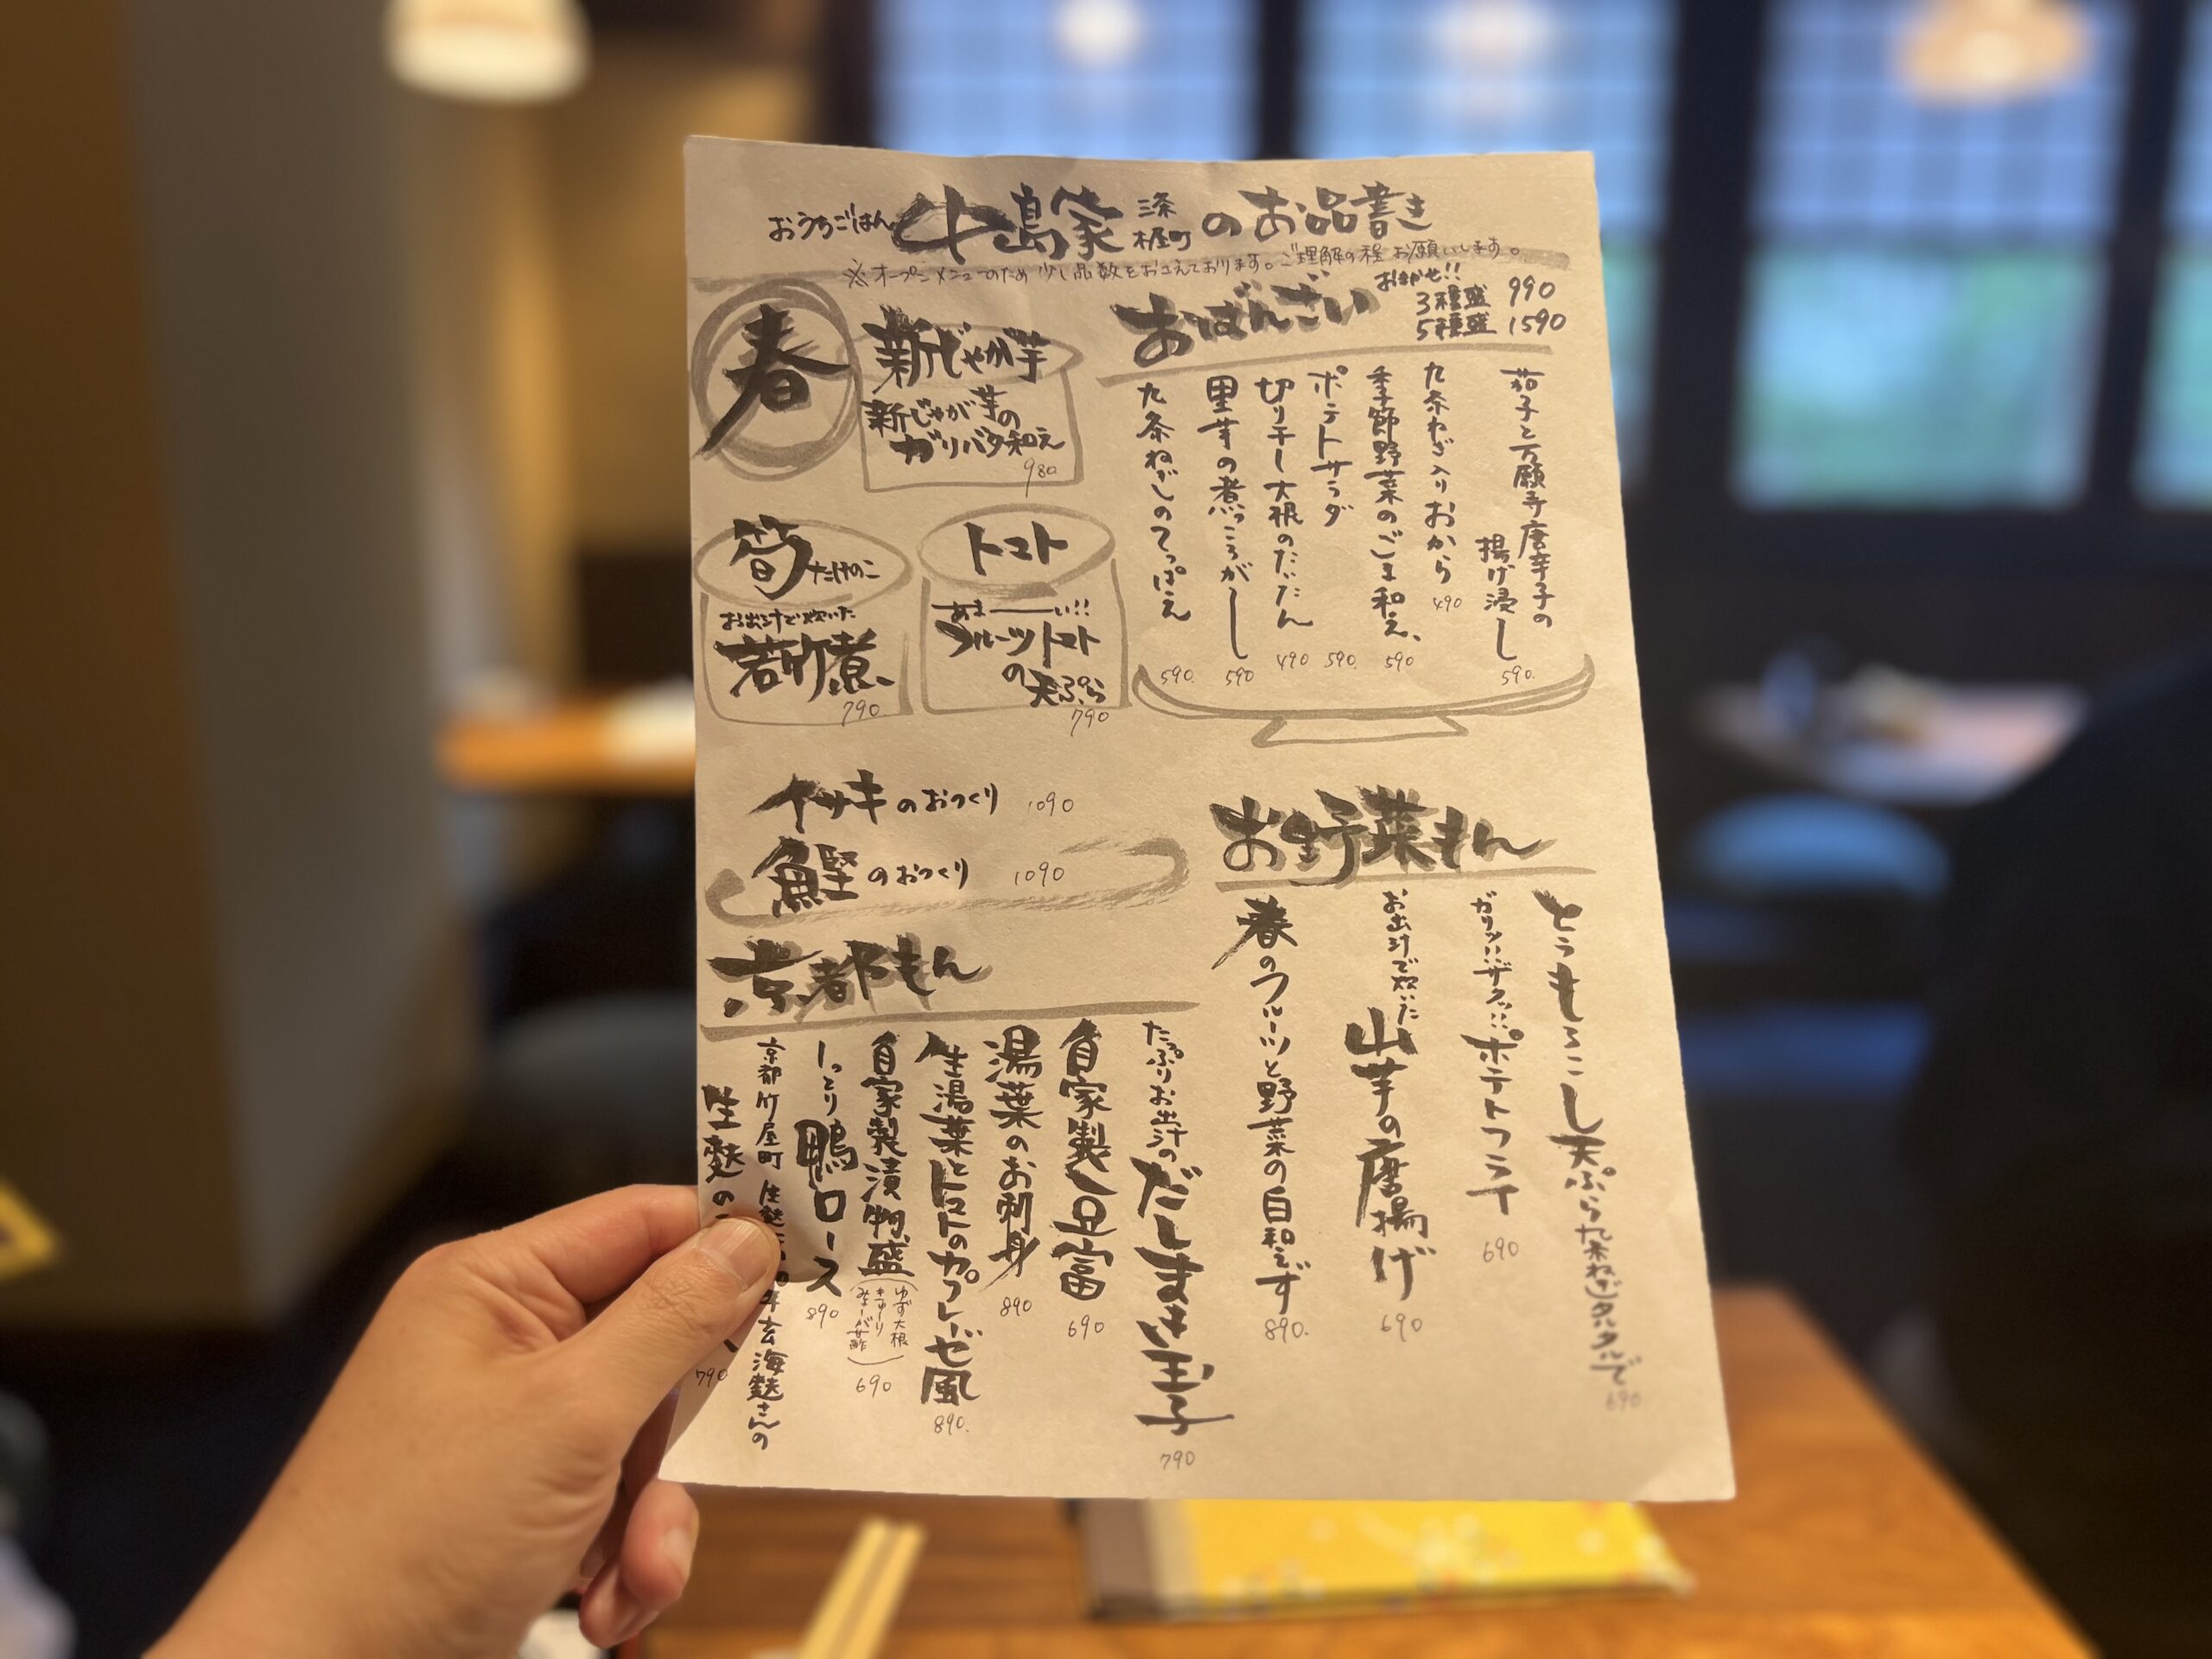 おうちごはん 牛島家 三条木屋町 のお品書き
※オープンメニューのため少し品数をおさえております。ご理解の程お願いします。
春
新じゃが芋
新じゃが芋の
ガリバタ和え
980
筍 たけのこ
お出汁で炊いた
若竹煮
790
トマト
あまーーい!!
フルーツトマト
の天ぷら
790
おばんざい
おまかせ!!
3種盛 990
5種盛 1590
茄子と万願寺唐辛子の
揚げ浸し
590.
九条ねぎ入りおから
490
季節野菜のごま和え
590
ポテトサラダ
590.
切り干し大根のたいたん
490
里芋の煮っころがし
590
九条ねぎのてっぱえ
590.
イサキのおつくり 1090
鰹のおつくり 1090
お野菜もん
とうもろこし天ぷら九条ねぎタルタルで
690
ガリッ!!ザクッ!!ポテトフライ
690
お出汁で炊いた
山芋の唐揚げ
690
春のフルーツと野菜の白和えず
890.
京都もん
たっぷりお出汁の
だしまき玉子
790
自家製豆富
690
湯葉のお刺身
890
生湯葉とトマトのカプレーゼ風
890.
自家製漬物盛
(ゆず大根
きゅーり
みょーが甘酢)
690
しっとり鴨ロース
890
京都竹屋町 生麩
海麩さんの
生麩の
790